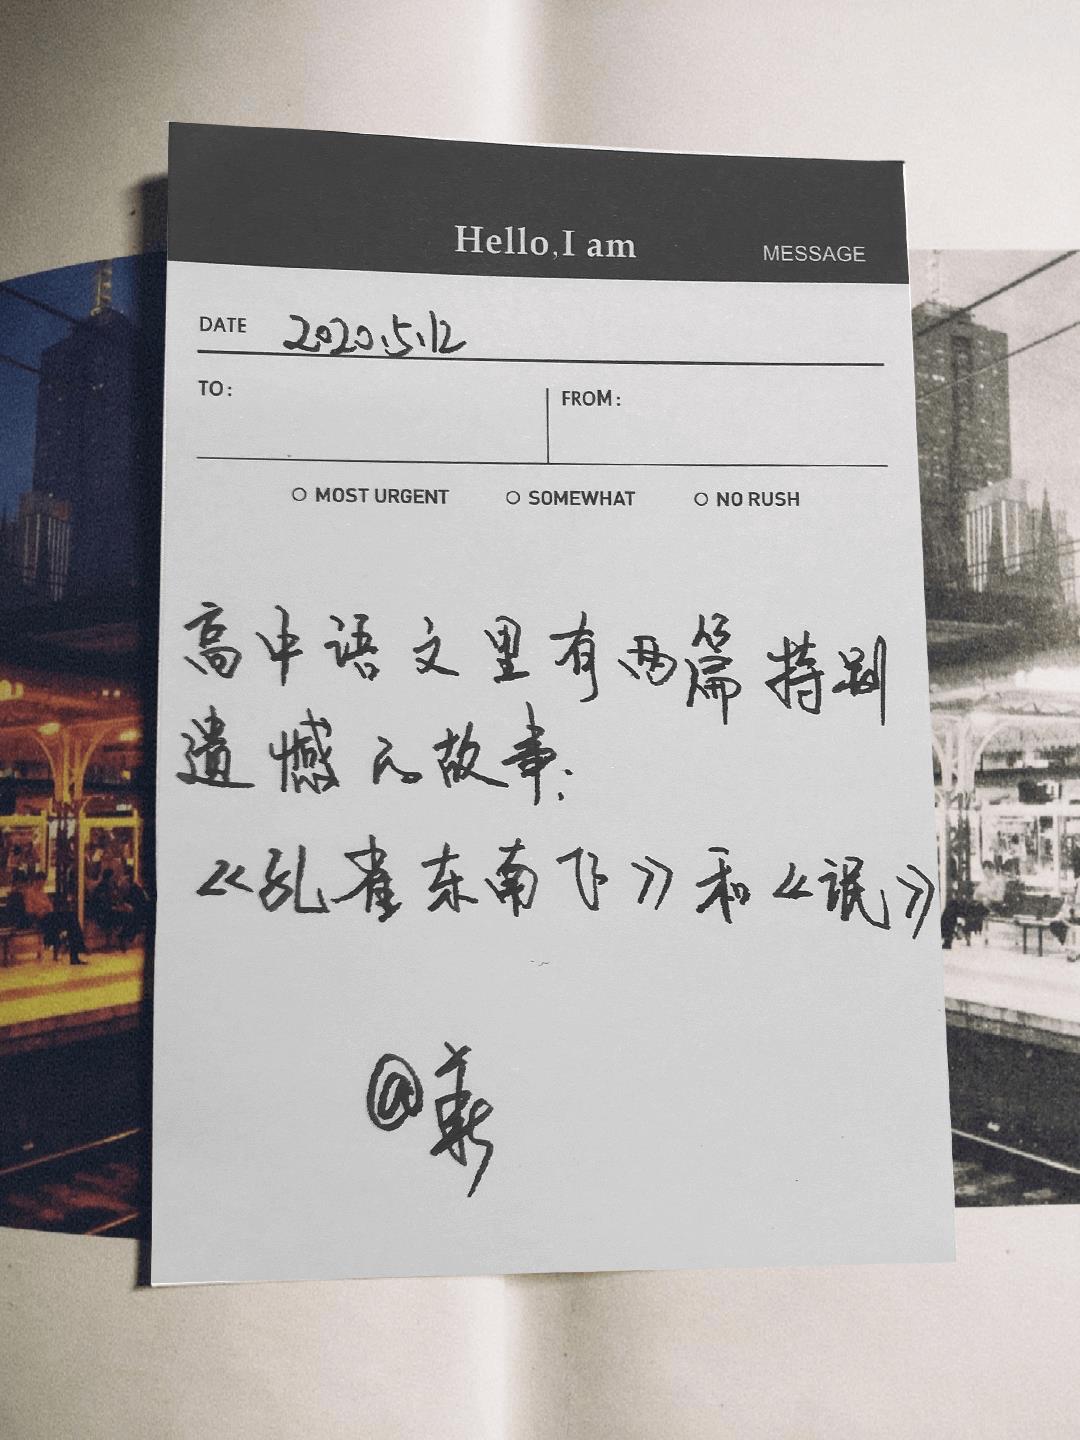 Hello, I am
MESSAGE
DATE 2020.5.12
TO:
FROM:
MOST URGENT
SOMEWHAT
NO RUSH
高中语文里有两篇特别
遗憾的故事:
《孔雀东南飞》和《氓》
@